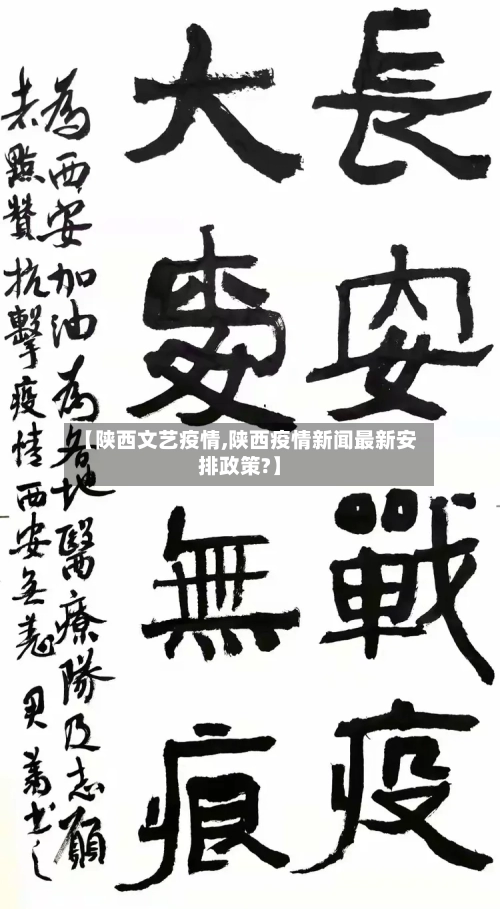 長安戰疫
大愛無痕
為西安加油為各地醫療隊及志願
者點贊抗擊疫情西安無恙
【陕西文艺疫情,陕西疫情新闻最新安
排政策?】